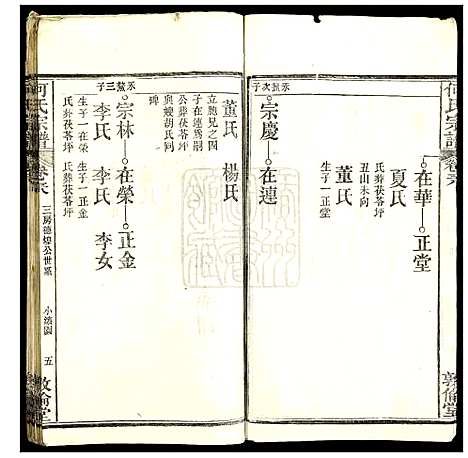 何氏宗譜
卷六
敦倫堂
在華—正堂
夏氏
氏葬茯苓坪
丑山未向
生子一正堂
董氏
承鰲次子
宗慶—在連
董氏 楊氏
立胞兄之四
子在連爲嗣
公葬茯苓坪
與嫂胡氏同
碑
承鰲三子
宗林—在榮—正金
李氏 李氏 李女
生子一在榮 生子一正金
氏葬茯苓坪 氏葬茯苓坪
何氏宗譜
卷六
三房德煌公世系
小溪園
五
敦倫堂